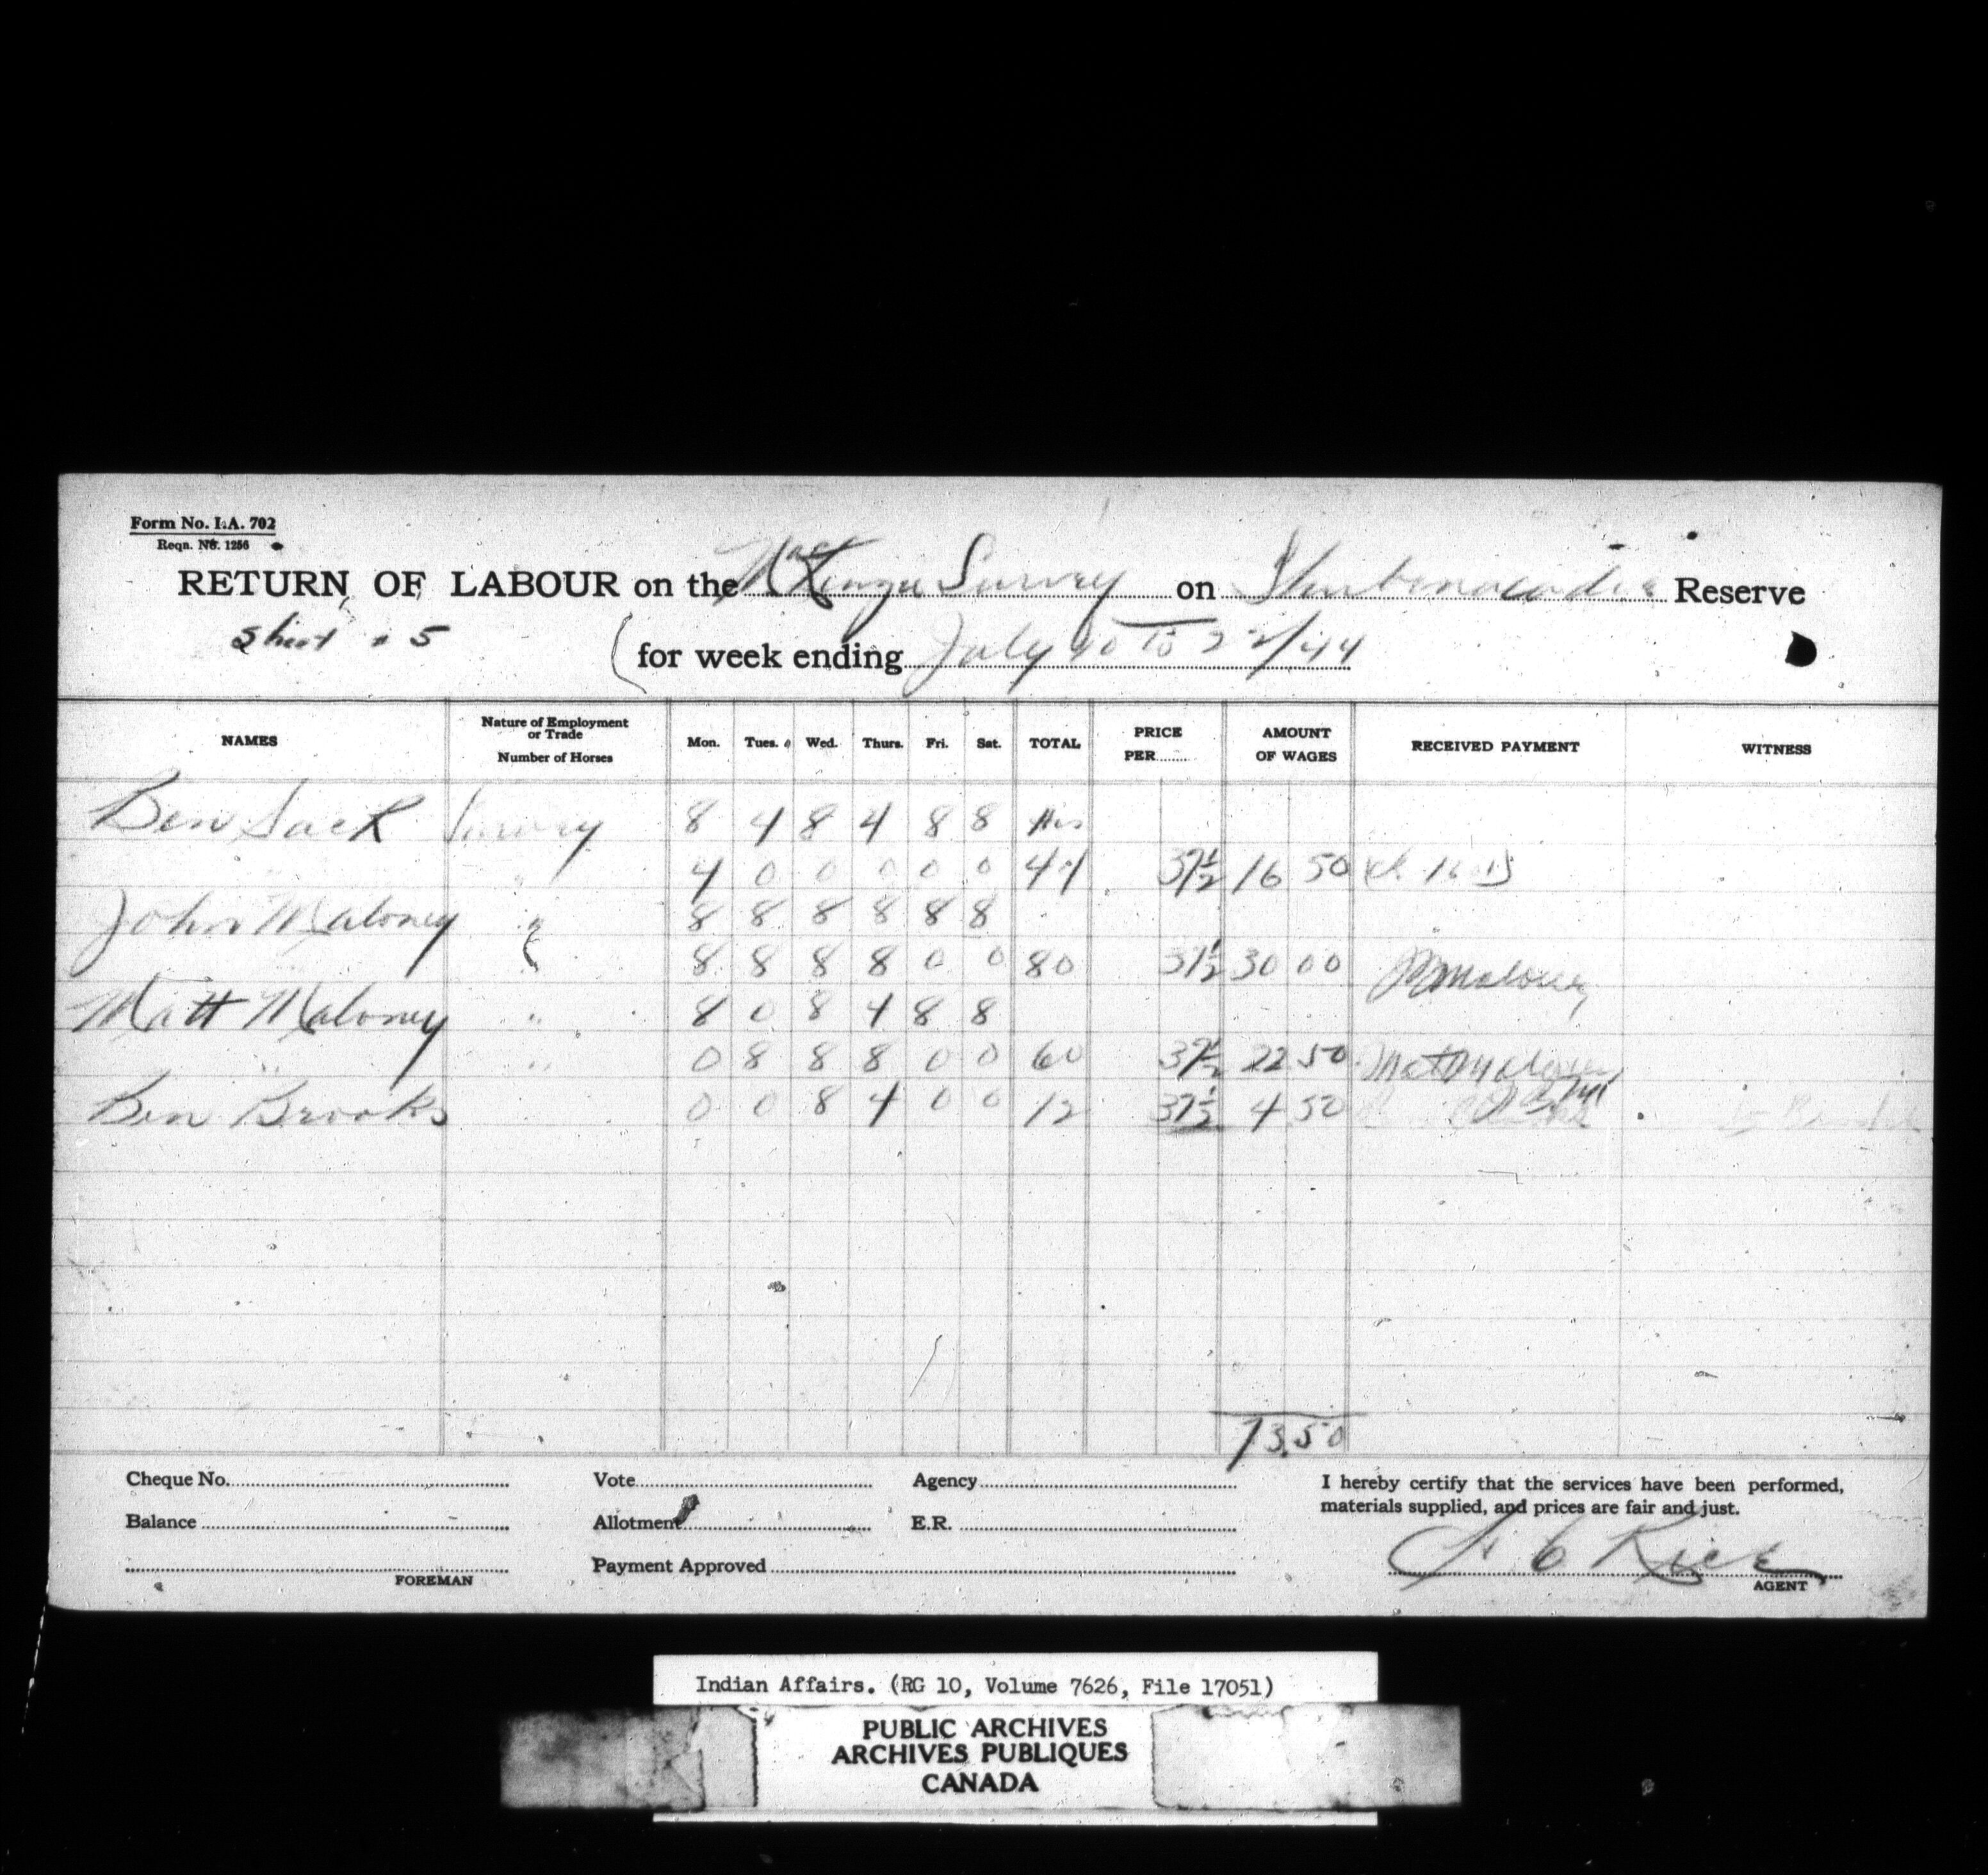 Form No. I.A. 702
Reqn. No. 1256
RETURN OF LABOUR on the MacKenzie Survey on Shubenacadie Reserve
Sheet # 5
for week ending July 10 To 22/44
NAMES Nature of Employment or Trade Number of Horses Mon. Tues. Wed. Thurs. Fri. Sat. TOTAL PRICE PER AMOUNT OF WAGES RECEIVED PAYMENT WITNESS
Ben Sack Survey 8 4 8 4 8 8 Hrs
" 4 0 0 0 0 0 44 37½ 16 50
John Maloney " 8 8 8 8 8 8
" 8 8 8 8 0 0 80 37½ 30 00 Maloney
Matt Maloney " 8 0 8 4 8 8
" " 0 8 8 8 0 0 60 37½ 22 50 Matt Maloney
Ben Brooks 0 0 8 4 0 0 12 37½ 4 50
73.50
Cheque No. Vote Agency I hereby certify that the services have been performed,
materials supplied, and prices are fair and just.
Balance Allotment E.R.
H C Rice
Payment Approved
FOREMAN AGENT
Indian Affairs. (RG 10, Volume 7626, File 17051)
PUBLIC ARCHIVES
ARCHIVES PUBLIQUES
CANADA